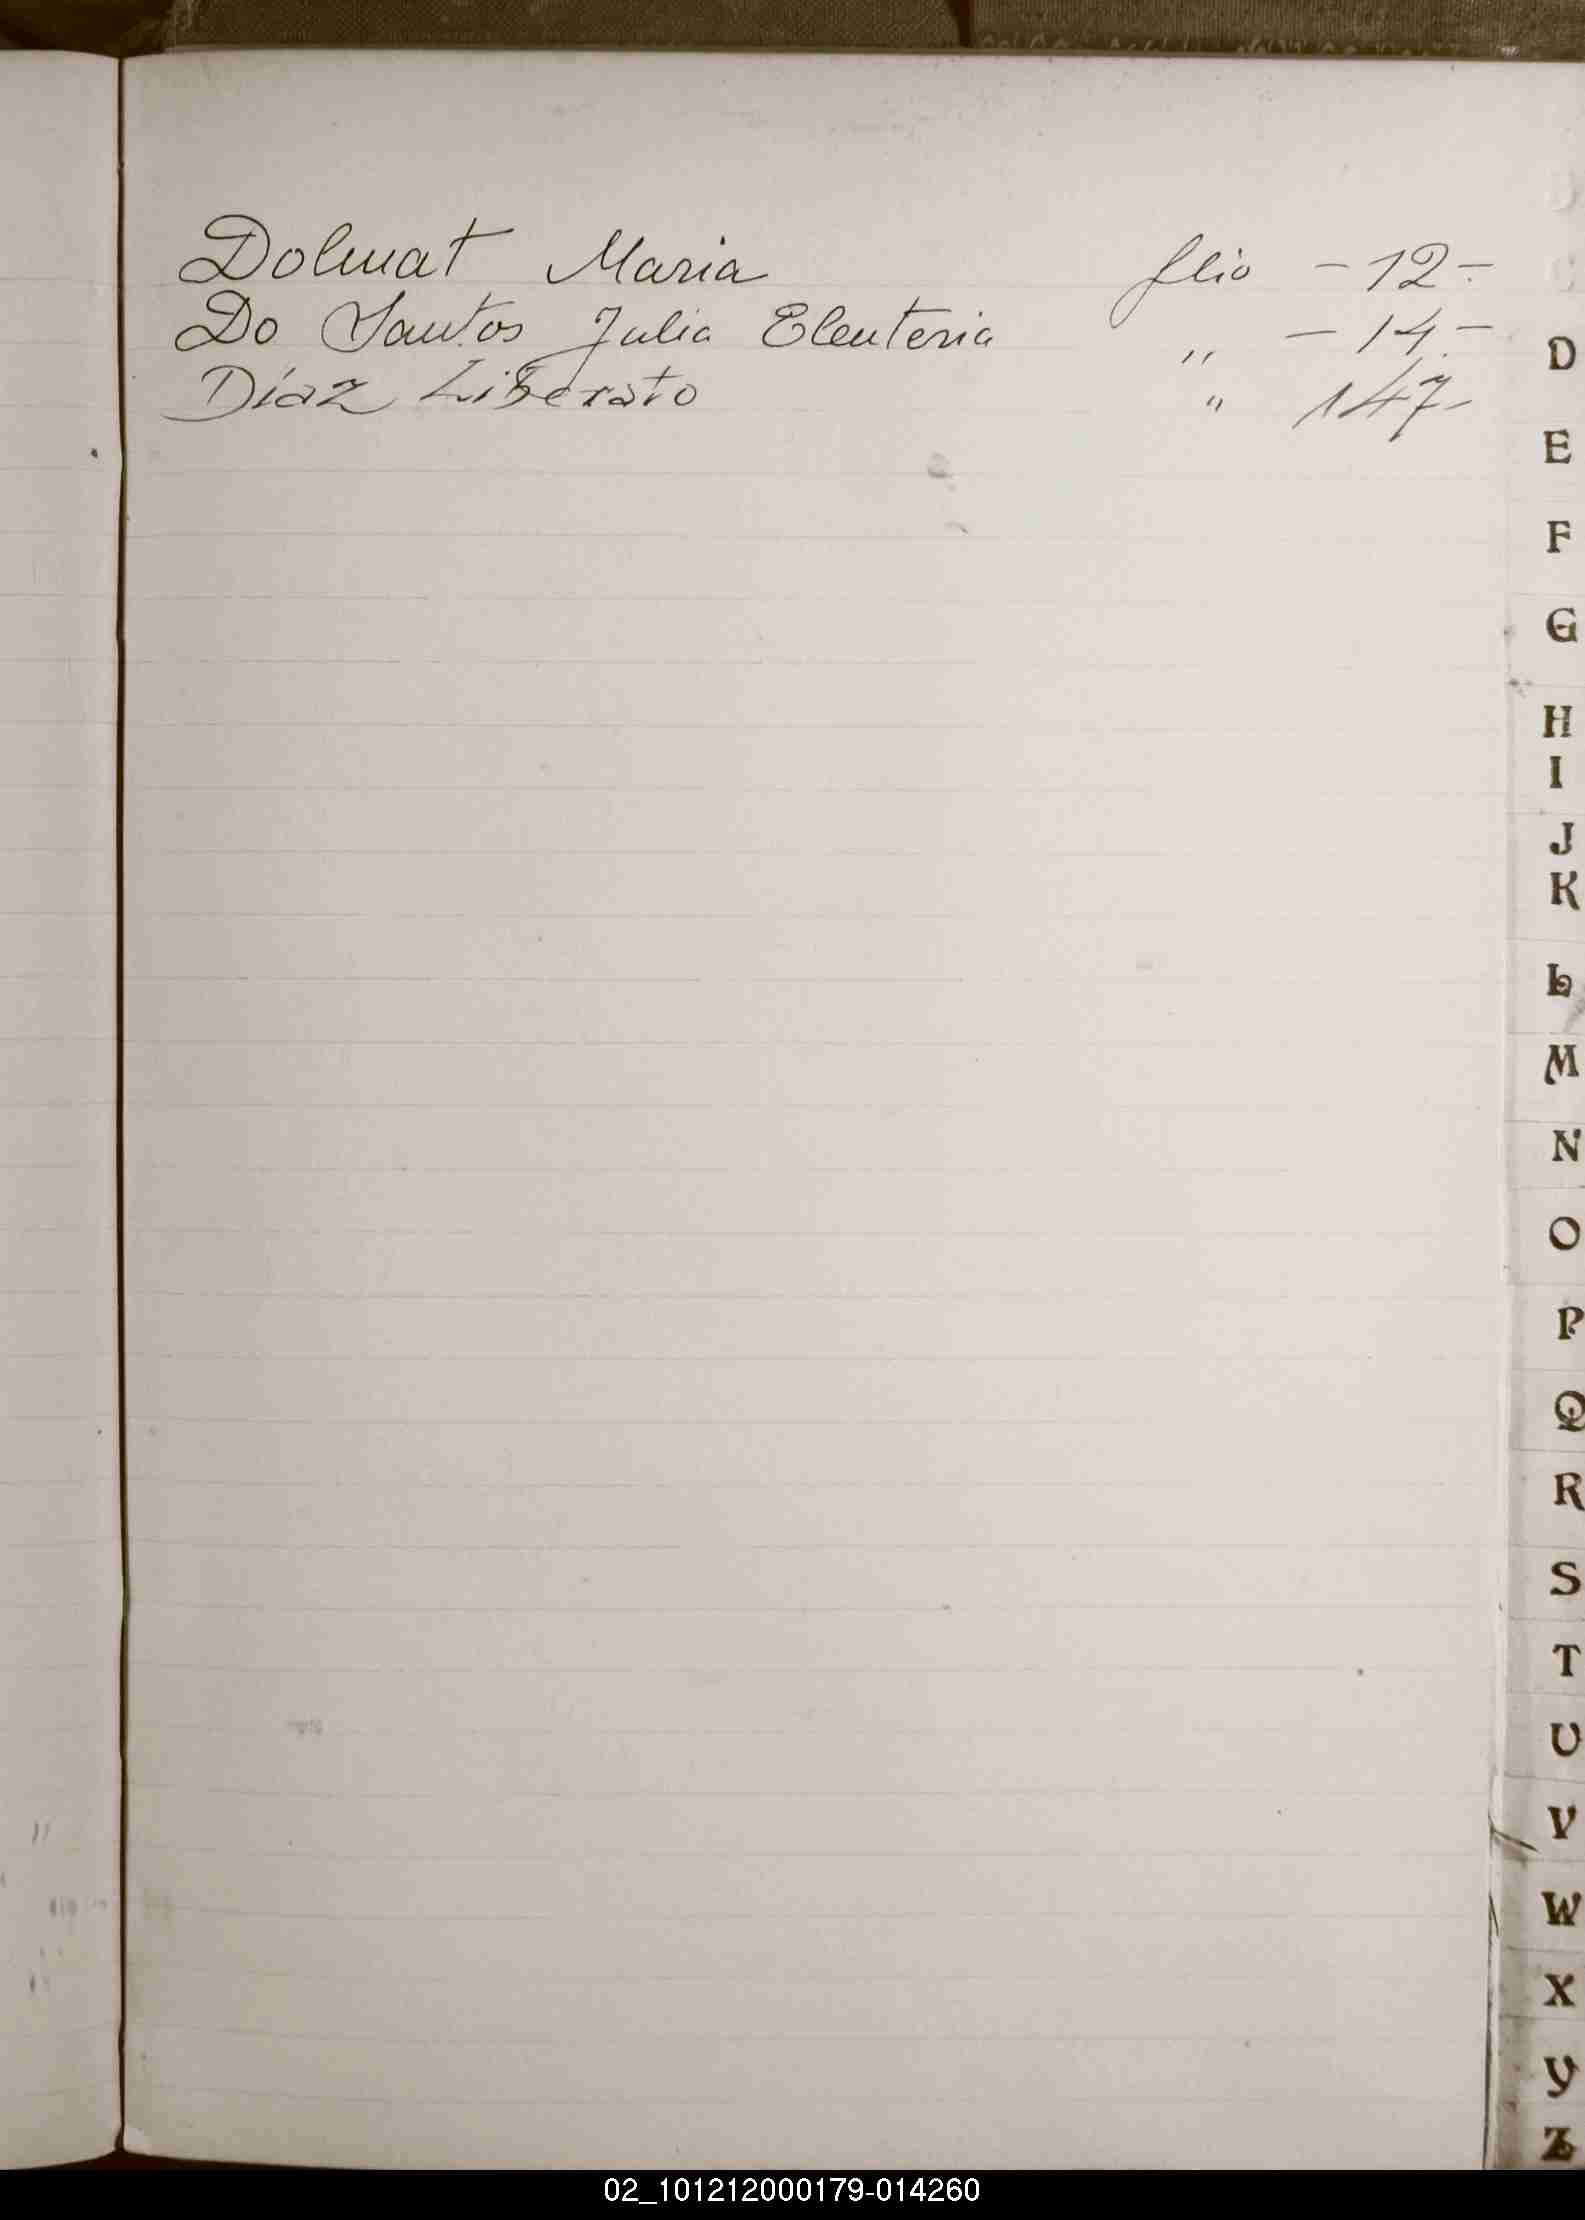 Dolmat Maria flio - 12 -
Do Santos Julia Eleuteria " - 14 -
Díaz Liberato " 147 -
D
E
F
G
H
I
J
K
L
M
N
O
P
Q
R
S
T
U
V
W
X
Y
Z
02_101212000179-014260